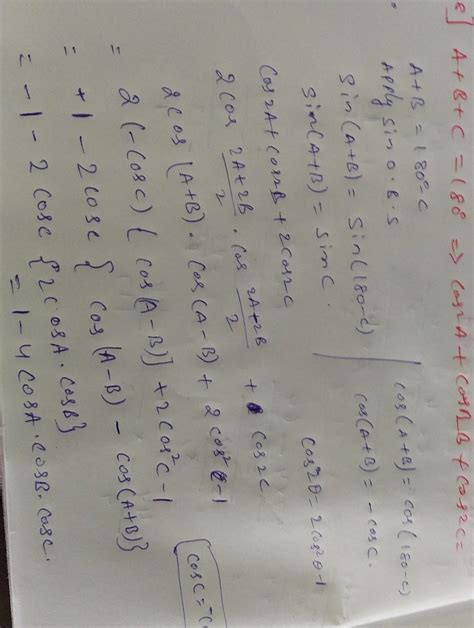 8] A+B+C = 180 => cos2A + cos2B + cos2C =
A+B = 180-C
Apply sin O.B.S
sin(A+B) = sin(180-C)
sin(A+B) = sinC.
cos(A+B) = cos(180-C)
cos(A+B) = -cosC.
cos2A + cos2B + 2cos2C
cos2θ = 2cos²θ-1
2cos 2A+2B/2 . cos 2A+2B/2 + cos2C
2cos(A+B) . cos(A-B) + 2cos²-1
= 2(-cosC) { cos(A-B)] + 2cos²C-1
cosC = -c
= +1 - 2cosC { cos(A-B) - cos(A+B)}
= -1 - 2cosC {2cosA.cosB}
= 1-4cosA.cosB.cosC.